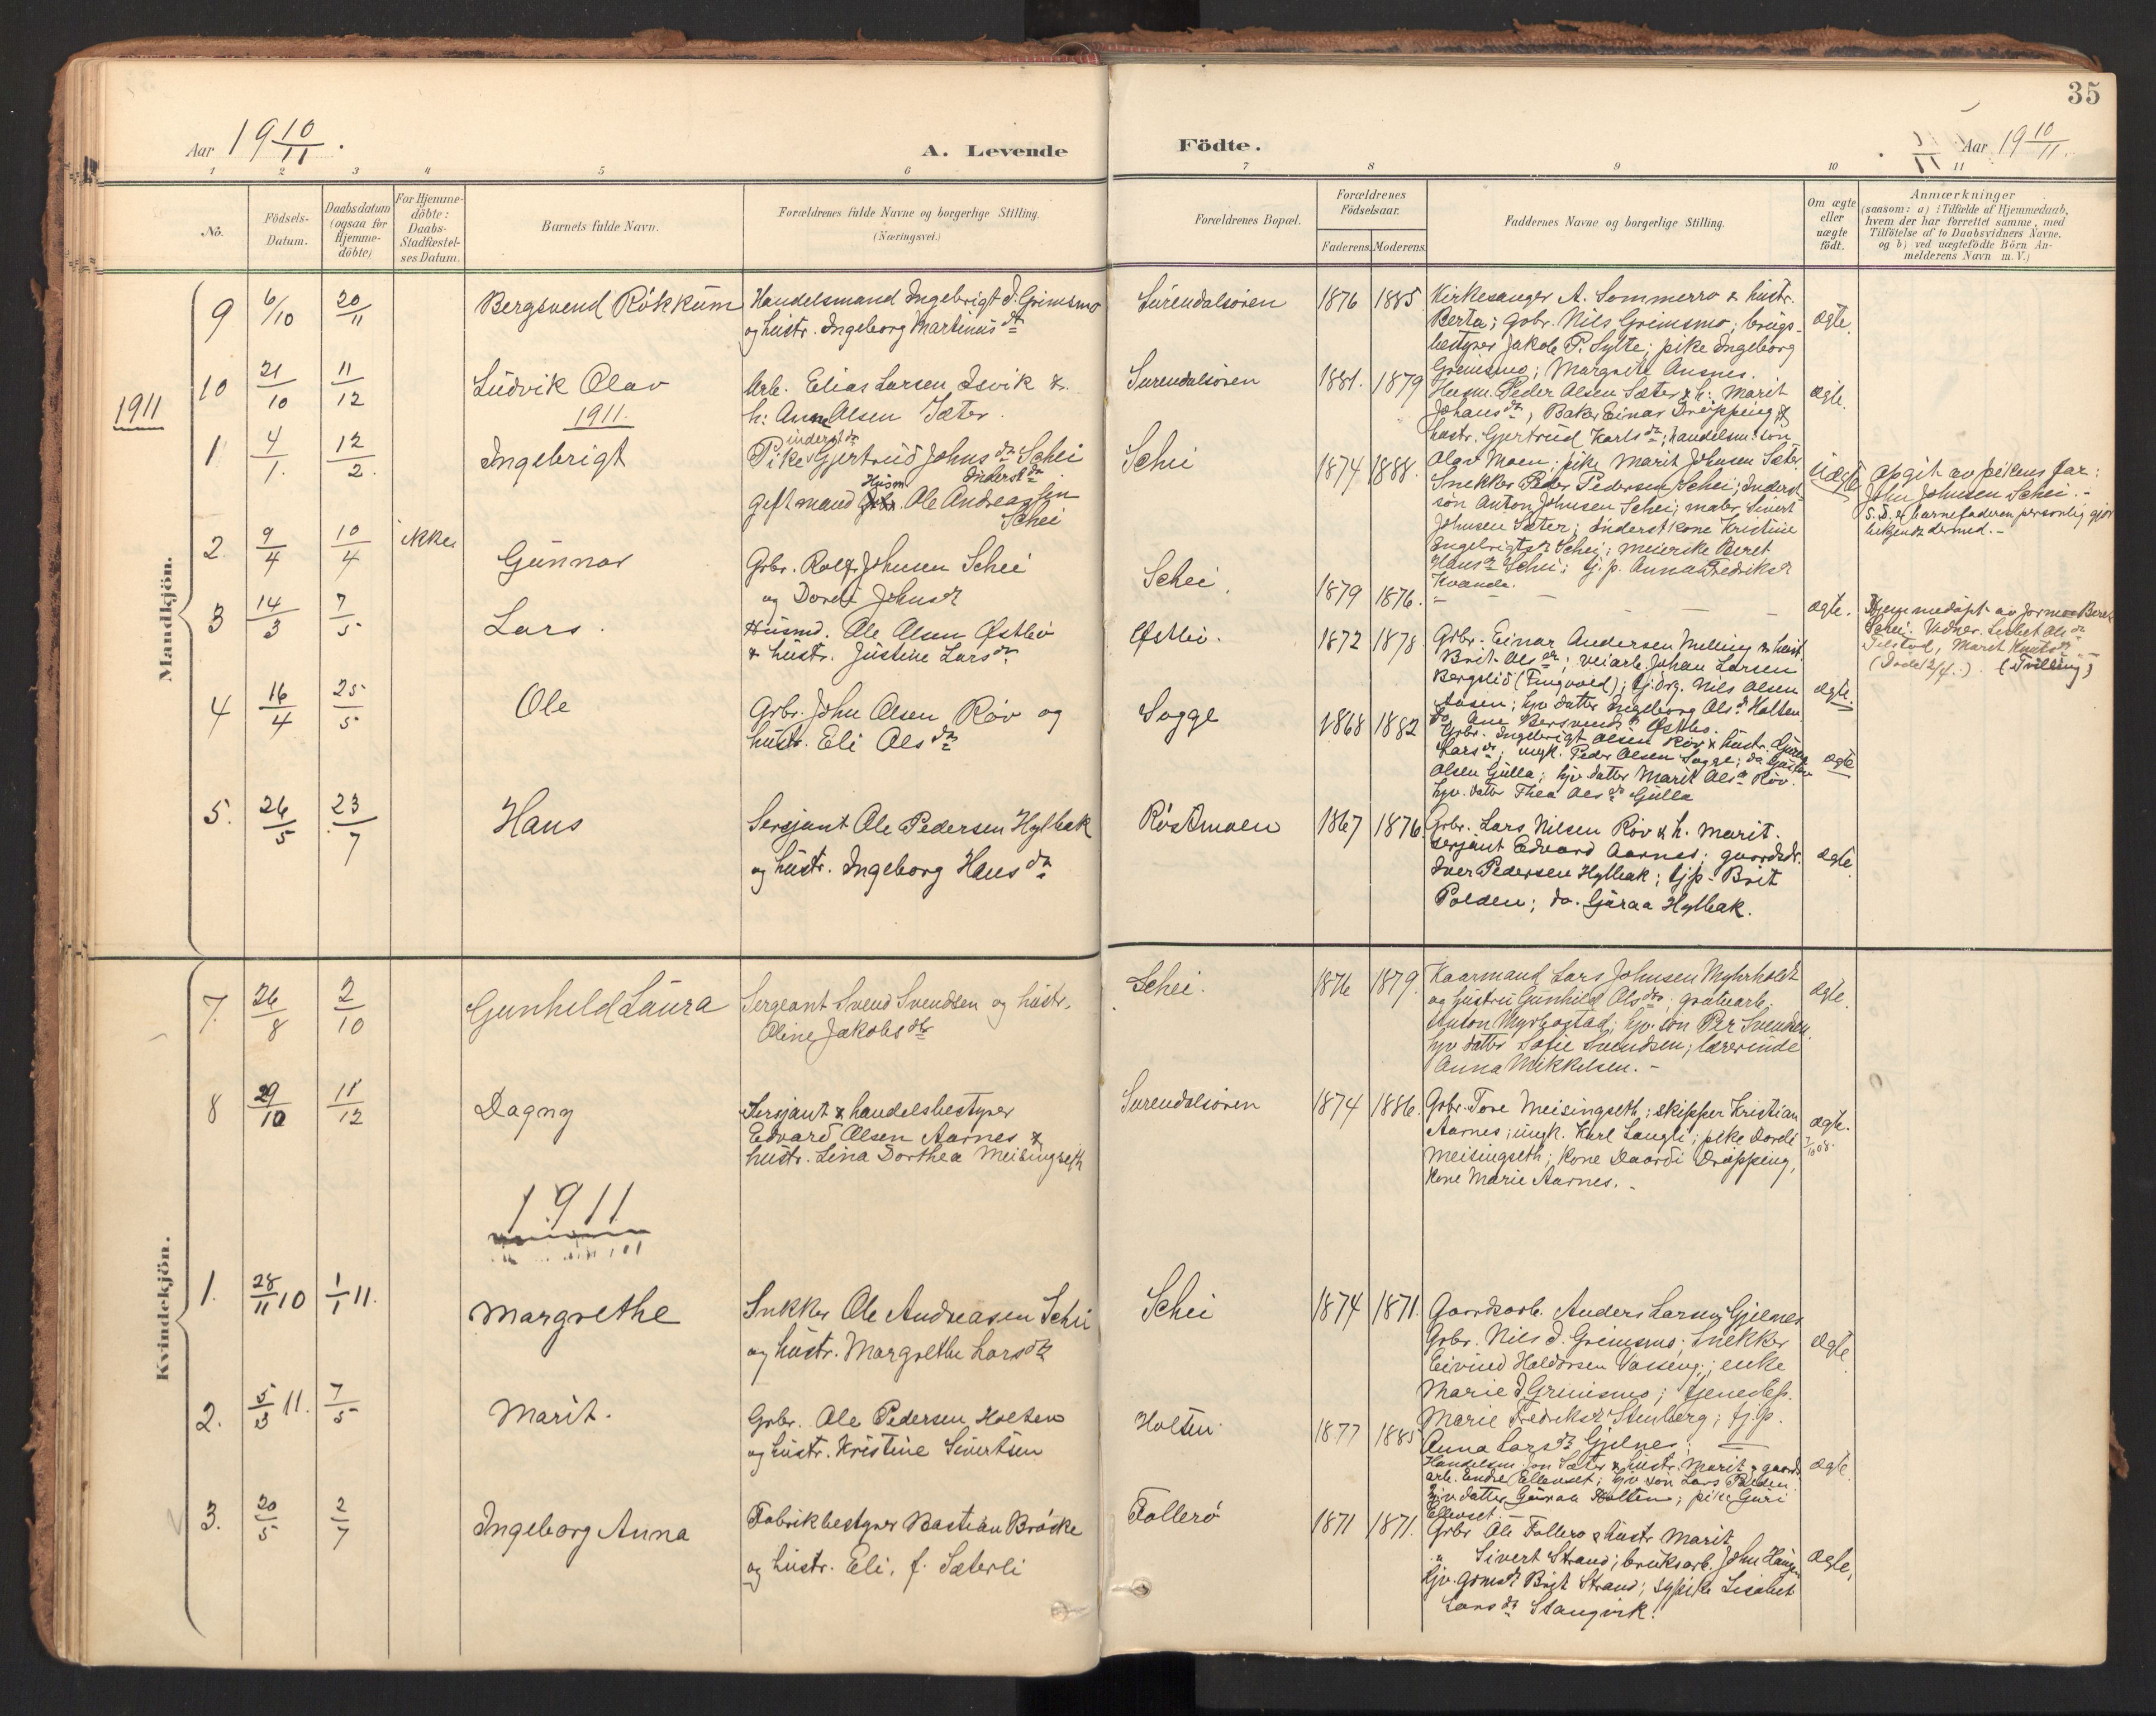 35
Aar 19 10/11.
A. Levende
Födte.
Aar 19 10/11.
1 2 3 4 5 6 7 8 9 10 11
No.
Födsels-
Datum.
Daabsdatum
(ogsaa for
Hjemme-
döbte)
For Hjemme-
döbte:
Daabs-
Stadfæstel-
ses Datum.
Barnets fulde Navn.
Forældrenes fulde Navne og borgerlige Stilling.
(Næringsvei.)
Forældrenes Bopæl.
Forældrenes
Födselsaar.
Faderens. Moderens.
Faddernes Navne og borgerlige Stilling.
Om ægte
eller
uægte
født.
Anmærkninger
(saasom: a) i Tilfælde af Hjemmedaab,
hvem der har forrettet samme, med
Tilföielse af to Daabsvidners Navne,
og b) ved uægtefödte Börn An-
melderens Navn m. V.)
Mandkjön.
9 6/10 20/11 Bergsvend Rökkum
Handelsmand Ingebrigt J. Grimsmo
og hustr. Ingeborg Martinusdt
Surendalsören 1876 1885
Kirkesanger A. Sommerro & hustr.
Berta; gbr. Nils Grimsmo; brugs-
bestyrer Jakob P. Sylte; pike Ingeborg
Grimsmo; Margrit Ansnes.
ægte.
10 21/10 11/12 Ludvik Olav
Arb. Elias Larsen Isvik &
h: Anne Olsen Sæter.
Surendalsören 1881. 1879
Husm. Peder Olsen Sæter & h: Marit
Johansdtr, Baker Einar Dröpping &
hustr. Gjertrud Karlsdtr; handelsm. sön
Olav Moen; pike Marit Johnsen Sæter.
ægte.
1911
1911.
1 4/1. 12/2. Ingebrigt
inderstdtr
Pike Gjertrud Johnsdtr Schei
Husm Inderstdtr
gift mand Ole Andreassen
Schei
Schei 1874 1888.
Snekker Peder Pedersen Schei; Inderst
sön Anton Johnsen Schei; maler Sivert
Johnsen Sæter; Inderst kone Kristine
Ingebrigtsdtr Schei; meierike Beret
Hansdtr Schei; tj. p. Anna Fredriksdtr
Kvande.
uægte
Opgit av pikens far:
John Johnsen Schei. -
S. D. at barnefaderen personlig gjör
bekjendt dermed. -
2. 9/4 10/4 ikke. Gunnar
Gbr. Rolf Johnsen Schei
og Doret Johnsdtr
Schei. 1879 1876. - - - - ægte.
Hjemmedöpt av jorm. Beret
Schei. Vidner. Lisbet Olsdtr
Telstad, Marit Knutsdtr -
(Döde 12/4.) (Tvilling)
3 14/3 7/5 Lars.
Husmd. Ole Olsen Østbö
& hustr. Justine Larsdtr
Østbö. 1872 1878
Gbr. Einar Andersen Melling & hust.
Brit Olsdtr; veiarb. Johan Larsen
Bergslid (Tingvold); tj.drg. Nils Olsen
Aasen; hjv datter Ingeborg Olsdt Holten
do Ane Bersvendsdt Østbö.
ægte.
4 16/4 25/5 Ole
Gbr. John Olsen Röv og
hustr. Eli Olsdtr
Sogge 1868 1882
Gbr. Ingebrigt Olsen Röv & hustr. Gjura
Larsdtr; ungk. Peder Olsen Sogge; do Gustav
Olsen Gulla; hjv datter Marit Olsdtr Röv.
hjv. datter Thea Olsdtr Gulla
ægte
5. 26/5 23/7 Hans
Sersjant Ole Pedersen Hylbak
og hustr. Ingeborg Hansdtr
Röstmoen 1867 1876
Gbr. Lars Nilsen Röv & h. Marit.
Sersjant Edvard Aarnes; gaardsdr.
Iver Pedersen Hylbak; tjp. Brit
Polden; do. Guraa Hylbak.
ægte.
Kvindekjön.
7. 26/8 2/10 Gunhild Laura
Sergeant Svend Svendsen og hustr.
Oline Jakobsdtr
Schei. 1876 1879.
Kaarmand Lars Johnsen Myhrholdt
og hustru Gunhild Olsdtr; gruvearb.
Anton Myrbostad; hjv. sön Per Svendsen
hjv datter Sofie Svendsen; lærerinde
Anna Mikkelsen. -
ægte.
8 29/10 11/12 Dagny
Sersjant & handelsbestyrer
Edvard Olsen Aarnes &
hustr. Lina Dorthea Meisingseth
Surendalsören 1874 1886.
Gbr. Tore Meisingseth; skipper Kristian
Aarnes; ungk. Karl Langli; pike Dordi
Meisingseth; kone Daardi Dröpping,
kone Marie Aarnes. -
ægte.
7/10 08.
1911
1. 28/11 10 1/1 11. Margrethe
Snkker Ole Andreasen Schei
og hustr. Margrethe Larsdtr
Schei 1874 1871.
Gaardsarb. Anders Larsen Gjelnes
Gbr. Nils J. Grimsmo; Snekker
Eivind Haldorsen Vaseng; enke
Marie J. Grimsmo; tjenestep.
Marie Fredriksdtr Stenberg; tj.p.
Anna Larsdtr Gjelnes. -
ægte
2. 5/3 11. 7/5 Marit.
Gbr. Ole Pedersen Holten
og hustr. Kristine Sivertsen
Holten. 1877 1885
Handelsm. Jon Sæter & hustr. Marit & gaards
arb. Endre Ellevset; hjv. sön Lars Polden
hjv. datter Guraa Holten; pike Guri
Ellevset. -
ægte.
3. 20/5 2/7 Ingeborg Anna
Fabrikbestyrer Bastian Bröske
og hustr. Eli, f. Sæterli
Follerö 1871 1871.
Gbr Ole Follerö & hustr Marit
" Sivert Strand; bruksarb. John Haugen
hjv. Brit Strand; sypike Lisabet
Larsdtr Stangvik.
ægte.